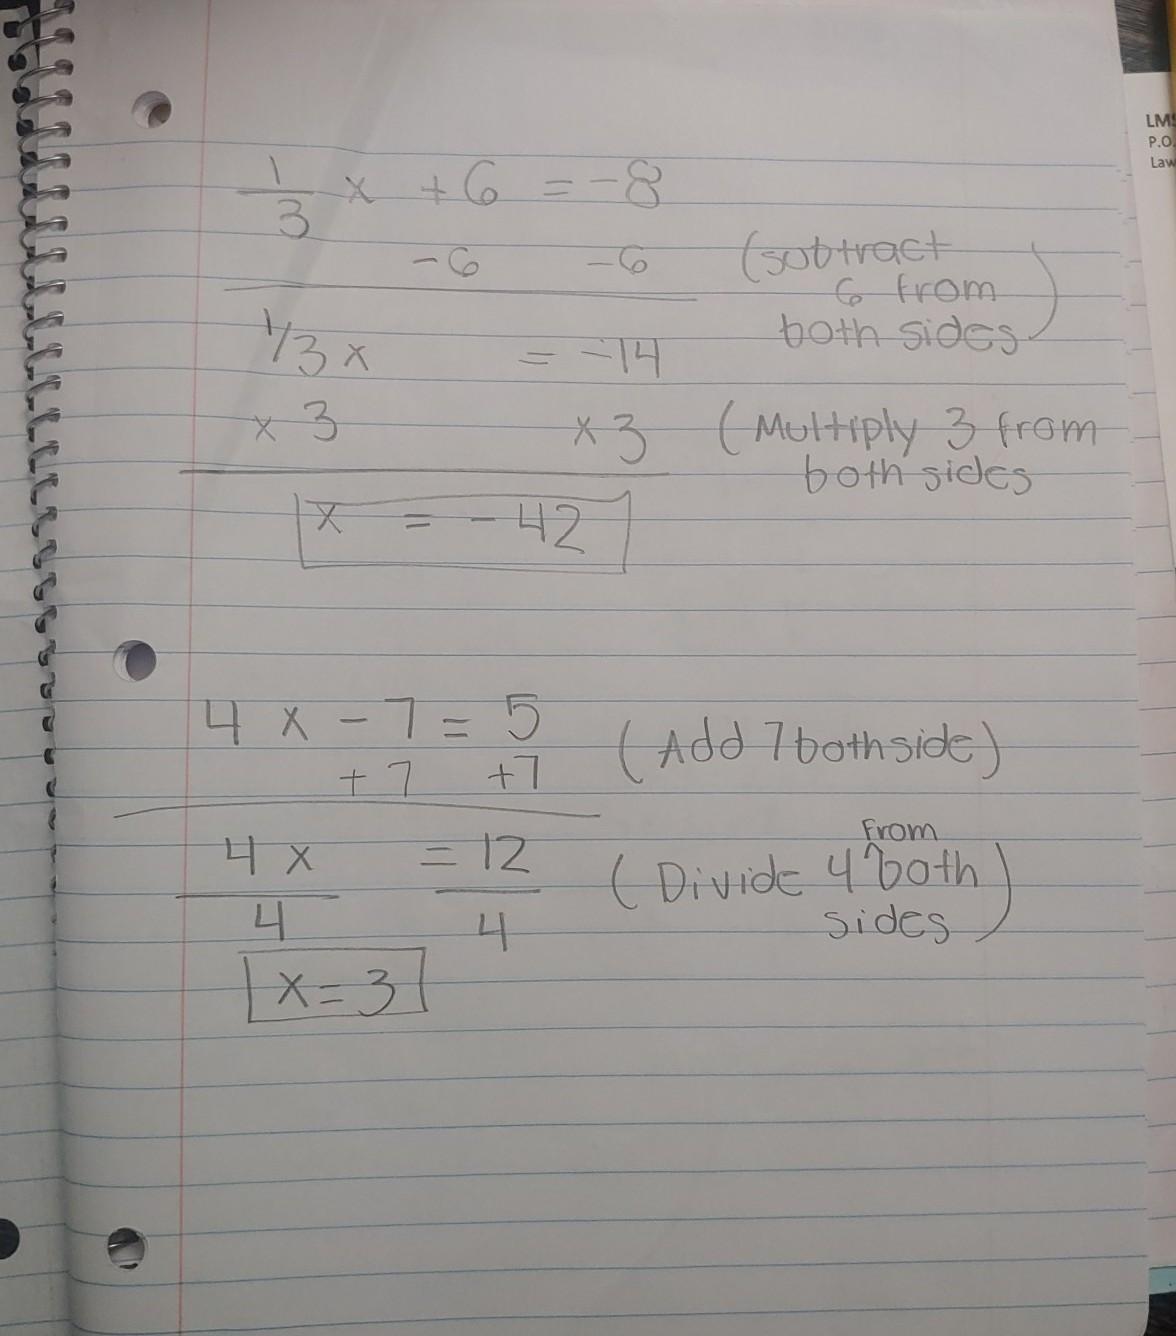 1/3 x + 6 = -8
-6 -6 (subtract
6 from
both sides)
1/3 x = -14
x 3 x 3 (Multiply 3 from
both sides
x = -42
4 x - 7 = 5
+ 7 +7 (Add 7 both side)
4 x = 12
4 4 (Divide 4 from both
sides)
x = 3
LMS
P.O.
Law